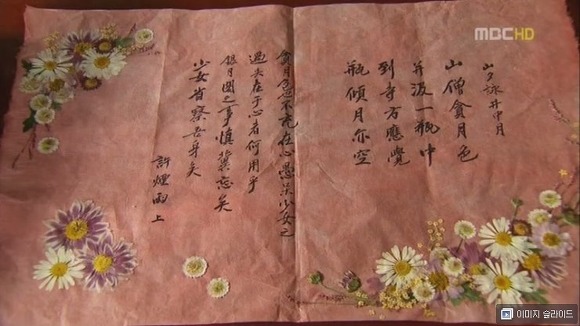 山夕詠井中月
山僧貪月色
并汲一瓶中
到寺方應覺
瓶傾月亦空
貪月色不充在心愚哉少女之
過失在于心者何用乎
銀月閣之事慎冀忘矣
少女省察吾身矣
許煙雨上
MBC HD
이미지 슬라이드